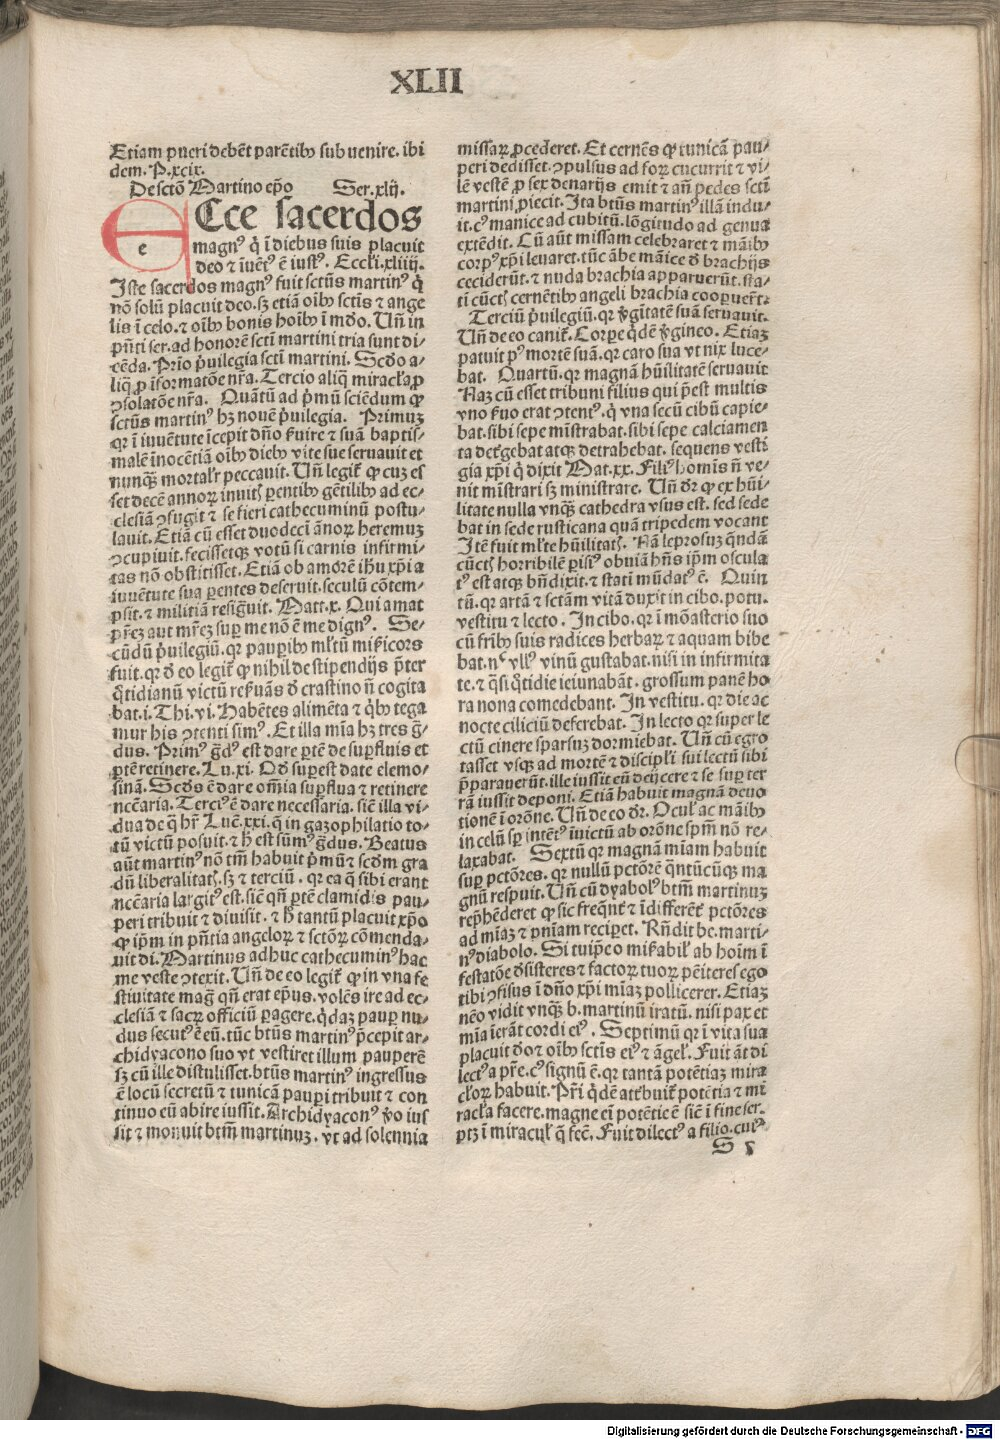 XLII
Etiam pueri debēt parētibꝰ sub venire. ibi
dem. P. xcix.
De sctō Martino epō Ser. xlij.
ECce sacerdos
e
magnꝰ q̇ ī diebus suis placuit
deo ⁊ īuētꝰ ē iustꝰ. Eccłi. xliiij.
Iste sacerdos magnꝰ fuit sctūs martinꝰ q̇
nō solū placuit deo. sꝫ etiā oībꝰ sctīs ⁊ ange
lis ī celo. ⁊ oībꝰ bonis hoībꝰ ī mōdo. Vñ in
pñti ser. ad honorē sctī martini tria sunt di-
cēda. Prīo p̉uilegia sctī martini. Scdo a-
liq̄ ꝓ īformatōe nr̄a. Tercio aliq̄ miracła ꝓ
ꝯsolatōe nr̄a. Quātū ad p̉mū sciēdum ꝙ
sctūs martinꝰ hꝫ nouē p̉uilegia. Primuꝫ
qꝛ ī iuuētute īcepit dño ẜuire ⁊ suā baptis-
malē īnocētiā oībꝰ diebꝰ vite sue seruauit et
nunqᷓꝫ mortalr̄ peccauit. Vñ legit̄ ꝙ cuꝫ es
set decē annoꝝ inuitꝭ ꝑentibꝰ gētilibꝰ ad ec-
clesiā ꝯfugit ⁊ se fieri cathecuminū postu-
lauit. Etiā cū esset duodecī ānoꝝ heremuꝫ
ꝯcupiuit. fecissetqꝫ votū si carnis infirmi-
tas nō obstitisset. Etiā ob amorē ihū xp̄i a
iuuētute sua ꝑentes deseruit. seculū cōtem-
psit. ⁊ militiā resignuit. Matt. x. Qui amat
pr̄eꝫ aut mr̄eꝫ suꝑ me nō ē me dignꝰ. Se-
cūdū p̉uilegiū. qꝛ pauꝑibꝰ mltū mīsicors
fuit. qꝛ ō eo legit̄ ꝙ nihil de stipendijs p̄ter
q̄tidianū victū reẜuās ō crastino ñ cogita
bat. i. Thi. vi. Habētes alimēta ⁊ qͥbꝰ tega
mur his ꝯtenti simꝰ. Et illa mīa hꝫ tres g̊-
dus. Primꝰ g̊dꝰ est dare ꝑtē de suꝑfluis et
ꝑtē retinere. Lu. xi. Qd̄ suꝑest date elemo-
sinā. Scds ē dare om̄ia suꝑflua ⁊ retinere
nc̄ēaria. Terciꝰ ē dare necessaria. sicē illa vi-
dua de q̄ hr̄ Luē. xxi. q̄ in gazophilatio to-
tū victū posuit. ⁊ h̄ est sūmꝰ g̊dus. Beatus
aūt martinꝰ nō tm̄ habuit p̉mū ⁊ scdm gra
dū liberalitatꝭ. sꝫ ⁊ terciū. qꝛ ea q̄ sibi erant
nc̄ēaria largitꝰ est. sicē qñ ꝑtē clamidis pau-
peri tribuit ⁊ diuisit. ⁊ h̄ tantū placuit xp̄o
ꝙ ip̄m in pñtia angeloꝝ ⁊ sctōꝝ cōmenda-
uit di. Martinus adhuc cathecuminꝰ hac
me veste ꝯtexit. Vñ de eo legit̄ ꝙ in vna fe
stiuitate mag̊ qñ erat ep̄us. volēs ire ad ec-
clesiā ⁊ sacꝝ officiū ꝑagere. q̇daꝫ pauꝑ nu-
dus secutꝰ ē eū. tūc btūs martinꝰ p̄cepit ar-
chidyacono suo vt vestiret illum pauperē
sꝫ cū ille distulisset. btūs martinꝰ ingressus
ē locū secretū ⁊ tunicā pauꝑi tribuit ⁊ con
tinuo eū abire iussit. Archidyaconꝰ v̊o ius
sit ⁊ monuit btm̄ martinuꝫ. vt ad solennia
missaꝝ ꝓcederet. Et cernēs ꝙ tunicā pau-
peri dedisset. ꝯpulsus ad foꝝ cucurrit ⁊ vi-
lē vestē ꝓ sex denarijs emit ⁊ añ pedes sctī
martini ꝓiecit. Ita btūs martinꝰ illā indu-
it. cꝰ manice ad cubitū. lōgitudo ad genua
extēdit. Cū aūt missam celebraret ⁊ māibꝰ
corpꝰ xp̄i leuaret. tūc ābe māice ō brachijs
ceciderūt. ⁊ nuda brachia apparuerūt. sta-
tī cūctꝭ cernētibꝰ angeli brachia cooꝑuer̄t.
Terciū p̉uilegiū. qꝛ v̉gītatē suā seruauit.
Vñ de eo canit̄. Corꝑe q̇dē v̉gineo. Etiaꝫ
patuit pꝰ mortē suā. qꝛ caro sua vt nix luce-
bat. Quartū. qꝛ magnā hūilitatē seruauit
Naꝫ cū esset tribuni filius qui p̄est multis
vno ẜuo erat ꝯtentꝰ. q̇ vna secū cibū capie-
bat. sibi sepe mīstrabat. sibi sepe calciamen
ta detergebat atqꝫ detrahebat. sequens vesti
gia xp̄i q̇ dixit Mat. xx. Filiꝰ homīs ñ ve-
nit mīstrari sꝫ ministrare. Vñ dr̄ ꝙ ex hūi-
litate nulla vnqᷓꝫ cathedra vsus est. sed sede
bat in sede rusticana quā tripedem vocant
Itē fuit mlte hūilitatꝭ. Nā leprosuꝫ q̇ndā
cūctꝭ horribilē ꝑisiꝰ obuiā hñs ip̄m oscula
tꝰ est atqꝫ bn̄dixit. ⁊ statī mūdatꝰ ē. Quin
tū. qꝛ artā ⁊ sctām vitā duxit in cibo. potu.
vestitu ⁊ lecto. In cibo. qꝛ ī mōasterio suo
cū fr̄ibꝰ suis radices herbaꝝ ⁊ aquam bibe
bat. nᵉ vllꝰ vinū gustabat. nisi in infirmita
te. ⁊ q̄si q̊tidie ieiunabāt. grossum panē ho
ra nona comedebant. In vestitu. qꝛ die ac
nocte ciliciū deferebat. In lecto qꝛ super le
ctū cinere sparsuꝫ dormiebat. Vñ cū egro
tasset vsqꝫ ad mortē ⁊ discipłi sui lectū sibi
p̄parauerūt. ille iussit eū deijcere ⁊ se suꝑ ter
rā iussit deponi. Etiā habuit magnā deuo
tionē ī orōne. Vñ de eo dr̄. Oculꝭ ac māibꝰ
in celū sꝑ intētꝰ īuictū ab orōne spm̄ nō re-
laxabat. Sextū qꝛ magnā mīam habuit
suꝑ pctōres. qꝛ nullū pctōrē q̄ntūcūqꝫ ma
gnū respuit. Vñ cū dyabolꝰ btm̄ martinuꝫ
rep̄hēderet ꝙ sic freqn̄t̄ ⁊ īdifferēt̄ pctōres
ad mīaꝫ ⁊ pn̄iam recipet. Rn̄dit be. marti-
nꝰ diabolo. Si tuip̄e o miẜabilꝭ ab hoīm ī
festatōe ōsisteres ⁊ factoꝝ tuoꝝ pēiteres ego
tibi ꝯfisus ī dño xp̄i mīaꝫ pollicerer. Etiaꝫ
nēo vidit vnqᷓꝫ b. martinū iratū. nisi pax et
mīa īerāt cordi eiꝰ. Septimū qꝛ ī vita sua
placuit ōo ⁊ oībꝰ sctīs eiꝰ ⁊ āgelꝭ. Fuit āt di
lectꝰ a pr̄e. cꝰ signū ē. qꝛ tantā potētiaꝫ mira
cłoꝝ habuit. Pr̄i q̇dē attribuit̄ potētia ⁊ mī
racła facere. magne ei potētie ē sicē ī fine ser.
ptꝫ ī miraculꝭ q̄ fec̄. Fuit dilectꝰ a filio. cuiꝰ
S
Digitalisierung gefördert durch die Deutsche Forschungsgemeinschaft - DFG